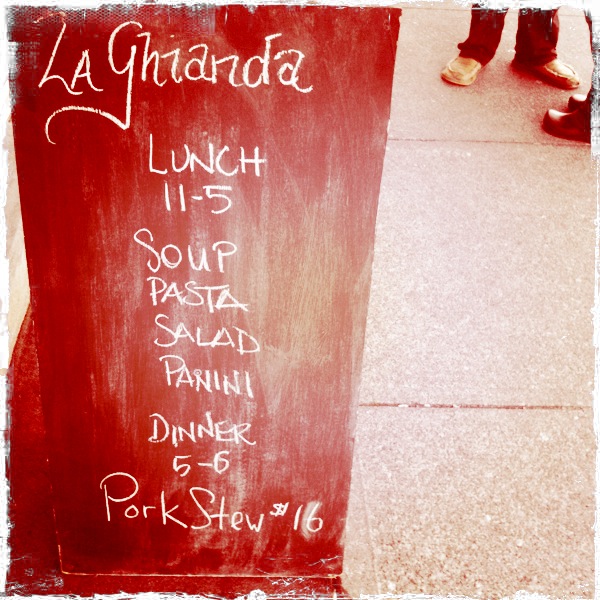 La Ghianda
LUNCH
11-5
SOUP
PASTA
SALAD
PANINI
DINNER
5-6
Pork Stew $16